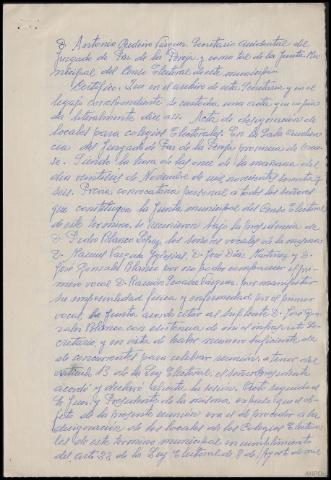 D. Antonio Pedeiro Vázquez, Secretario accidental del
Juzgado de Paz de la Peroja y como tal de la Junta Mu-
nicipal del Censo Electoral de este municipio
Certifico: Que en el archivo de esta Secretaria y en el
legajo correspondiente se custodia una acta que copia-
da literalmente dice así. Acta de designación de
locales para colegios Electorales. En la Sala audien-
cia del Juzgado de Paz de la Peroja provincia de Oren-
se. Siendo la hora de las once de la mañana del
día veintiseis de Noviembre de mil novecientos
seis. Previa convocatoria personal a todos los señores
que constituyen la Junta municipal del Censo Electoral
de este termino se reunieron bajo la presidencia de
D. Pedro Blanco López, los señores vocales de la misma
D. Manuel Vazquez Iglesias, D. José Díaz Martínez y D.
José Gonzalez Blanco por no poder comparecer el pri-
mero vocal D. Ramón Vázquez, por manifestar
su imposibilidad fisica y enfermedad por el primer
vocal, la Junta acordó citar al suplente D. José Gon-
zalez Blanco con asistencia de mi el infrascrito Se-
cretario, y en vista de haber número suficiente de
de concurrentes para celebrar reunión a tenor del
articulo 13 de la Ley Electoral, el señor presidente
acordó y declaró abierta la sesión. Acto seguido el
Sr Juez y Presidente de la misma expuso que el ob-
jeto de la presente reunión era el de proceder a la
designación de los locales de los Colegios Electora-
les de este termino municipal en cumplimiento
del art: 22 de la Ley Electoral de 8 de Agosto de mil